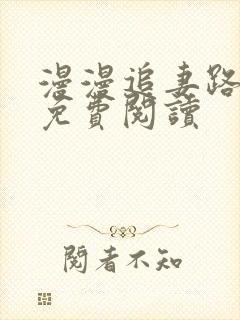 漫漫追妻路
免費閱讀
閱者不知